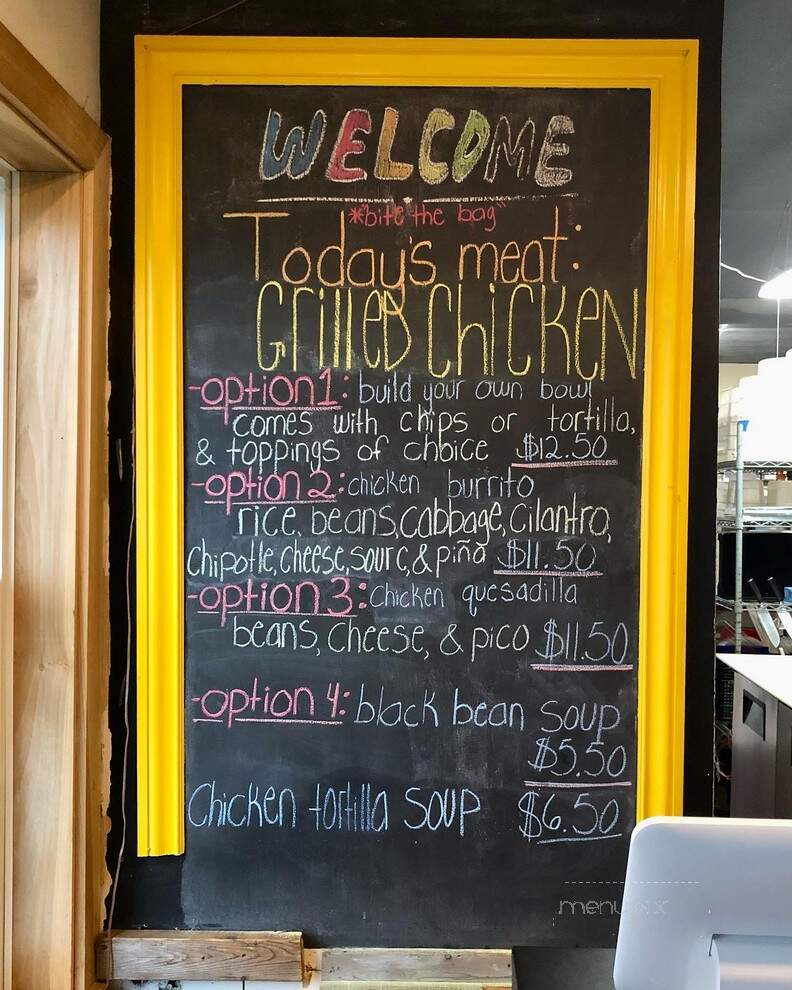 WELCOME
*"bite the bag"
Today's meat:
GrilleD ChicKeN
-option 1: build your own bowl
comes with chips or tortilla,
& toppings of choice $12.50
-option 2: chicken burrito
rice, beans, cabbage, cilantro,
chipotle, cheese, sour c, & piña $11.50
-option 3: chicken quesadilla
beans, cheese, & pico $11.50
-option 4: black bean soup
$5.50
Chicken tortilla soup $6.50
menupix